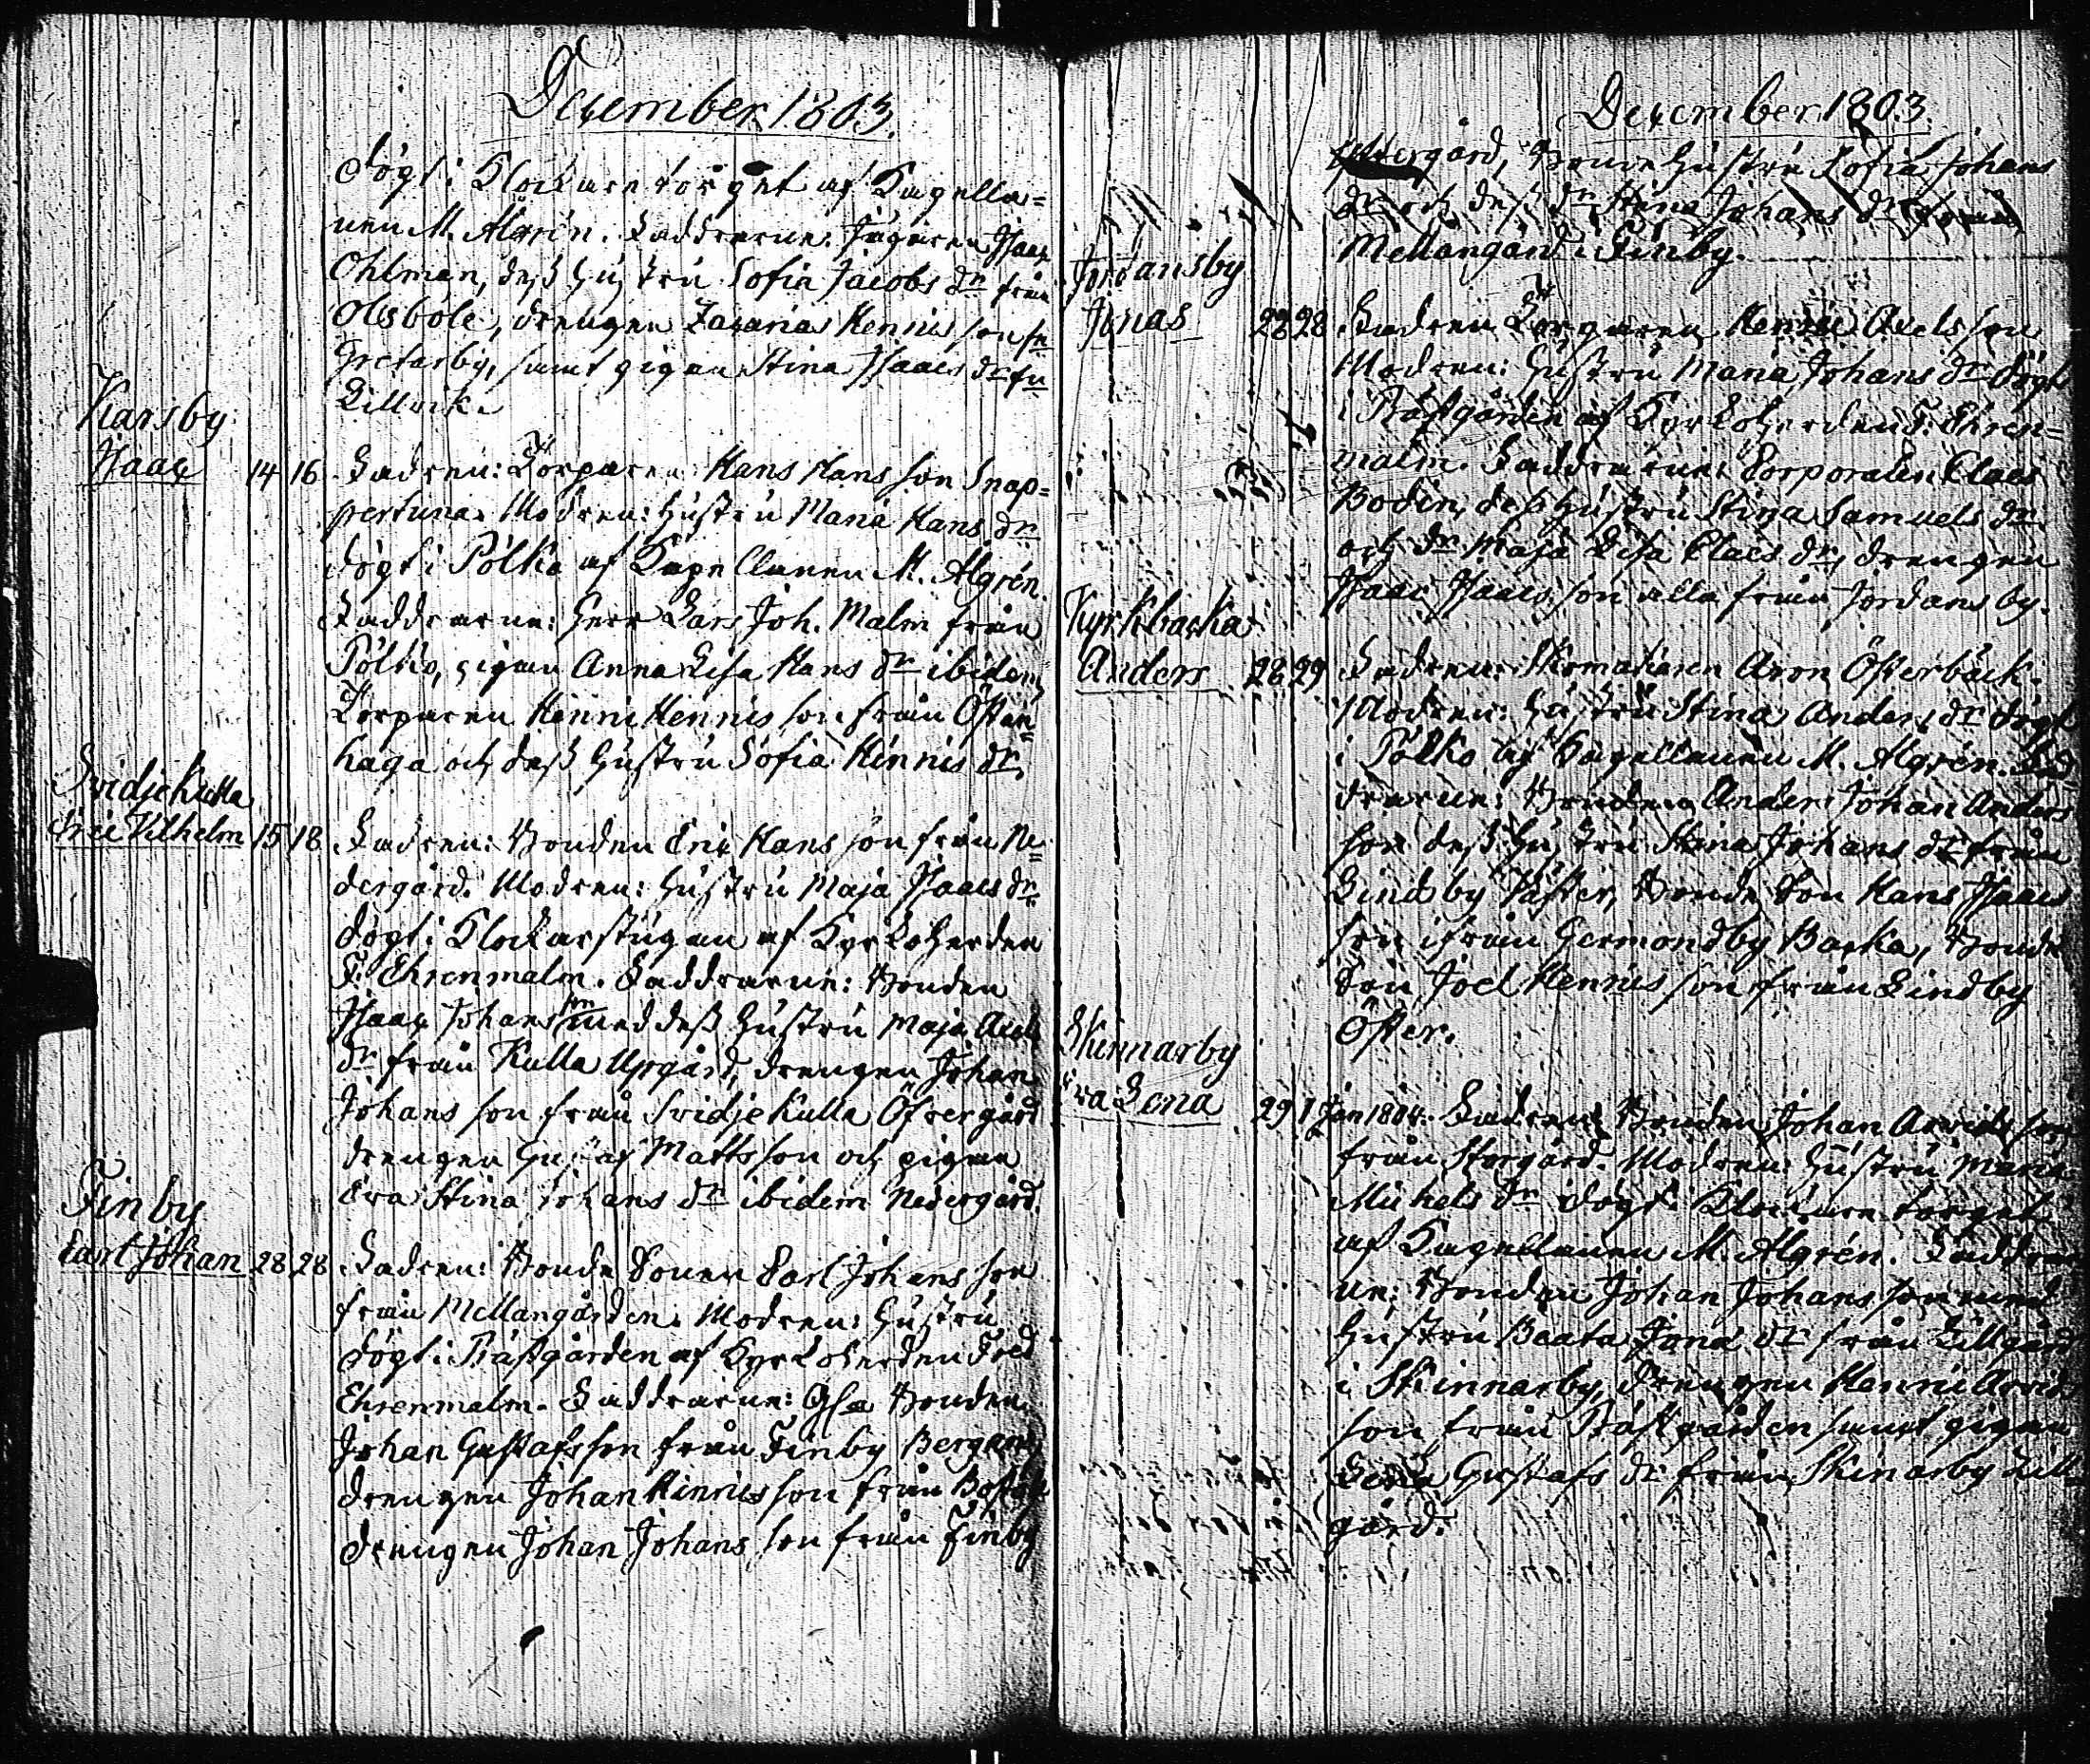 December 1803.
döpt i Klockare torpet af Kapella=
nen M. Algrén. Faddrarne: Jägaren Isaac
Ohlman, dess hustru Sofia Jacobs dr från
Olsböle, drengen Zacarias Henrics son fn
Gretarby, samt pigan Stina Isaacs dr fn
Lillvik.
Karsby
Isaac 14 16 Fadren: Torparen Hans Hans son Snap=
pertuna. Modren: hustru Maria Hans dr
döpt i Pölko af Kapellanen M. Algrén.
Faddrarne: Herr Lars Joh. Malm från
Pölko, pigan Anna Lisa Hans dr ibidem,
Torparen Henric Henrics son från Östan=
haga och dess hustru Sofia Henrics dr.
SvidjeKulla
Eric Vilhelm 15 18 Fadren: Bonden Eric Hans son från Ne=
dergård. Modren: hustru Maja Isaacs dr
döpt i Klockarstugan af Kyrkoherden
F. Ehrenmalm. Faddrarne: Bonden
Isaac Johans son med dess hustru Maja Axels
dr från Kulla Uppgård, drengen Johan
Johans son från SvidjeKulla Öfvergård
drengen Gustaf Matts son och pigan
Eva Stina Johans dr ibidem Nedergård.
Finby
Carl Johan 28 28 Fadren: Bonde Sonen Carl Johans son
från Mellangården. Modren: hustru
döpt i Prästgården af Kyrkoherden Fred
Ehrenmalm. Faddrarne: Bonden
Johan Gustafs son från Finby Bergen,
drengen Johan Henrics son från
drengen Johan Johans son från Finby
December 1803.
Bonde hustru Sofia Johans
dr och dess dr Stina Johans dr från
Mellangård i Finby.
Jordansby
Jonas 28 28 Fadren Torparen Henric Axels son
Modren: hustru Maria Johans dr döpt
i Prästgården af Kyrkoherden F. Ehren=
malm. Faddrarne: Corporalen Claes
Bodin, dess hustru Stina Samuels dr
och dr Maja Lisa Claes dr, drengen
Isaac Isaacs son alla från Jordansby.
Kyrkbacka
Anders 28 29 Fadren: Skomakaren Aron Österback.
Modren: hustru Stina Anders dr döpt
i Pölko af Kapellanen M. Algrén. Fad
drarne: Bonden Anders Johan Anders
son dess hustru Stina Johans dr från
Lindby Väster, Bonde Son Hans Isaacs
son ifrån Germondby Backa, Bonde
Son Joel Henrics son från Lindby
Öster.
Skinnarby
Eva Lena 29 1 Jan 1804. Fadren: Bonden Johan Arvids son
från Storgård. Modren: hustru Maria
Michels dr döpt i Klockare torpet
af Kapellanen M. Algrén. Faddrar
ne: Bonden Johan Johans son med
hustru Beata Jona dr från Lillgård
i Skinnarby, Drengen Henric Arvids
son från Prästgården samt pigan
Lena Gustafs dr från Skinarby Lill=
gård.